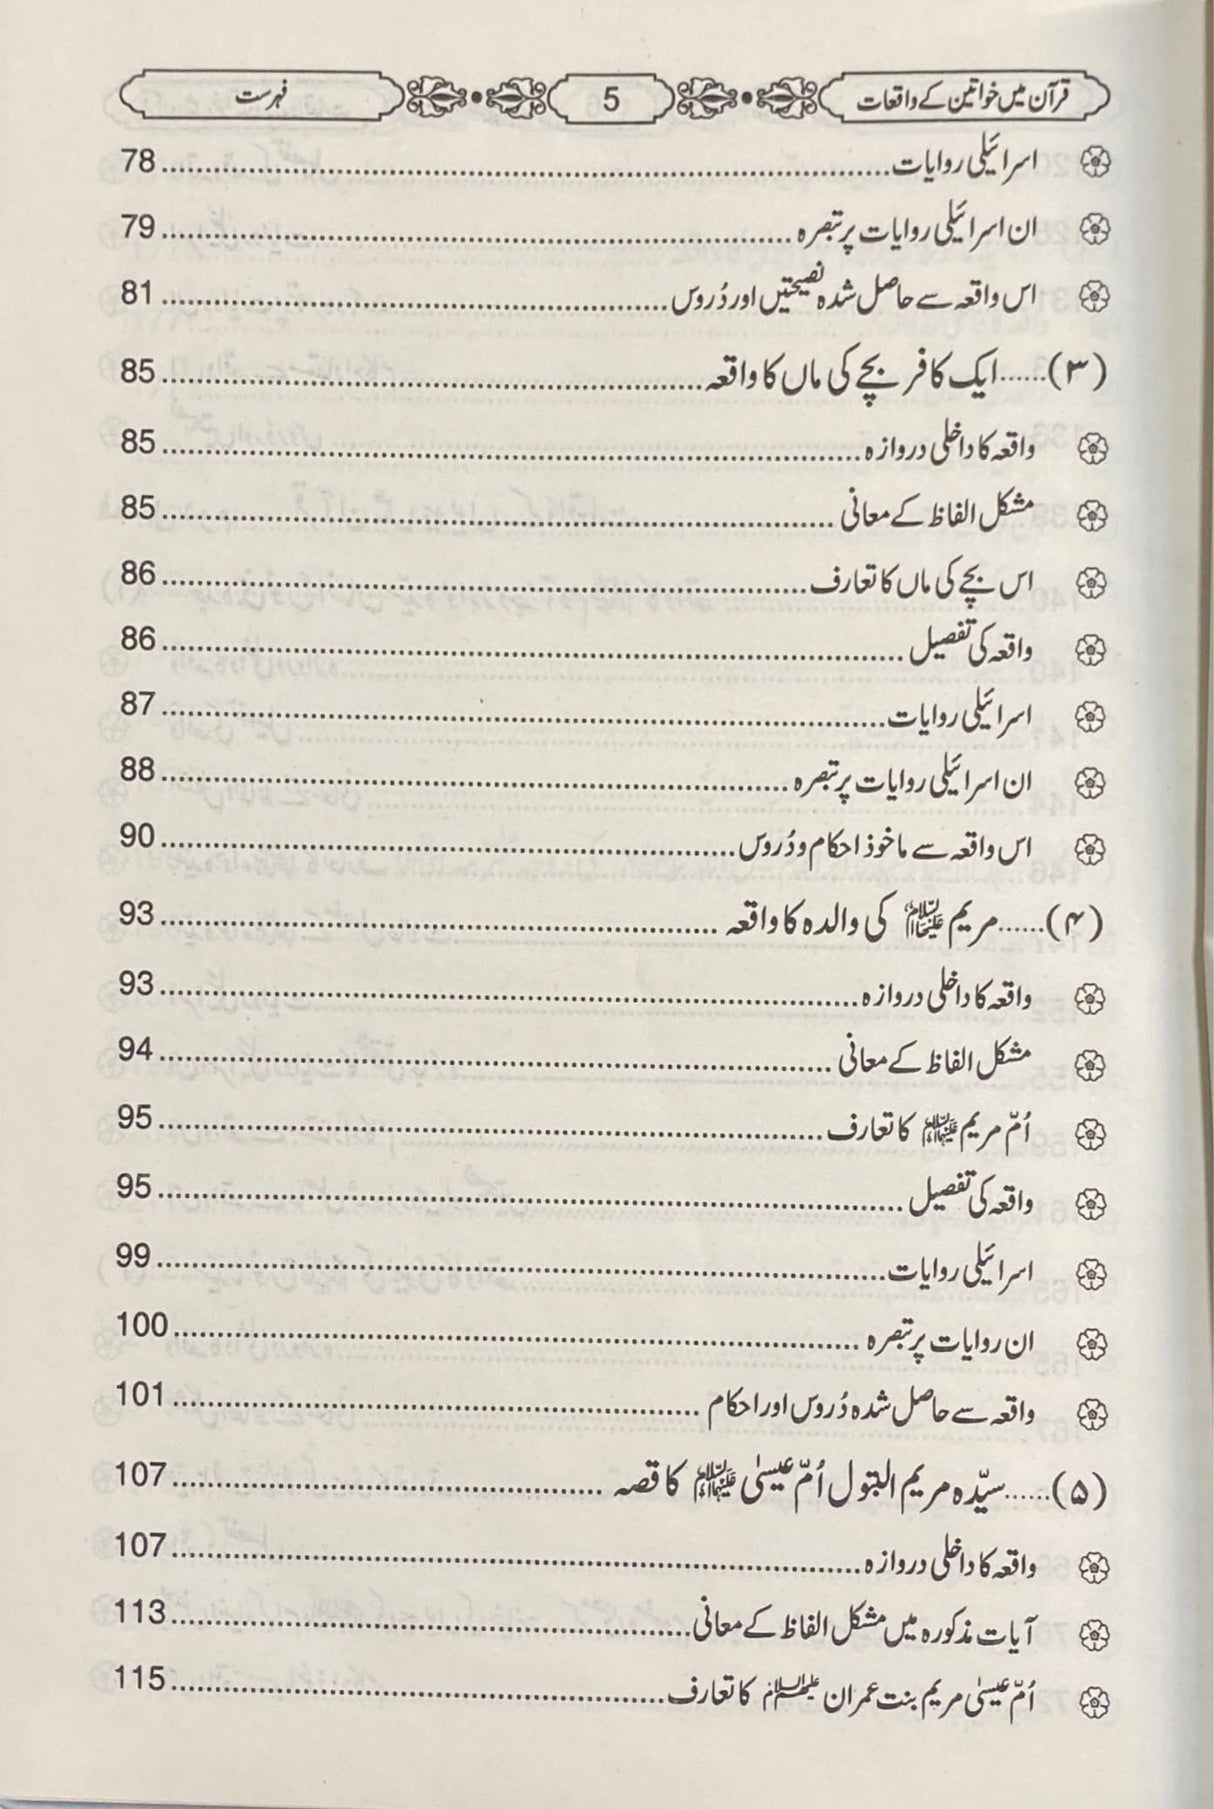 قرآن میں خواتین کے واقعات 5 فہرست
اسرائیلی روایات 78
ان اسرائیلی روایات پر تبصرہ 79
اس واقعہ سے حاصل شدہ نصیحتیں اور دُروس 81
(۳)......ایک کافر بچے کی ماں کا واقعہ 85
واقعہ کا داخلی دروازہ 85
مشکل الفاظ کے معانی 85
اس بچے کی ماں کا تعارف 86
واقعہ کی تفصیل 86
اسرائیلی روایات 87
ان اسرائیلی روایات پر تبصرہ 88
اس واقعہ سے ماخوذ احکام و دُروس 90
(۴)......مریم علیہا السلام کی والدہ کا واقعہ 93
واقعہ کا داخلی دروازہ 93
مشکل الفاظ کے معانی 94
اُمّ مریم علیہا السلام کا تعارف 95
واقعہ کی تفصیل 95
اسرائیلی روایات 99
ان روایات پر تبصرہ 100
واقعہ سے حاصل شدہ دُروس اور احکام 101
(۵)......سیّدہ مریم البتول اُمّ عیسیٰ علیہا السلام کا قصہ 107
واقعہ کا داخلی دروازہ 107
آیات مذکورہ میں مشکل الفاظ کے معانی 113
اُمّ عیسیٰ مریم بنت عمران علیہم السلام کا تعارف 115